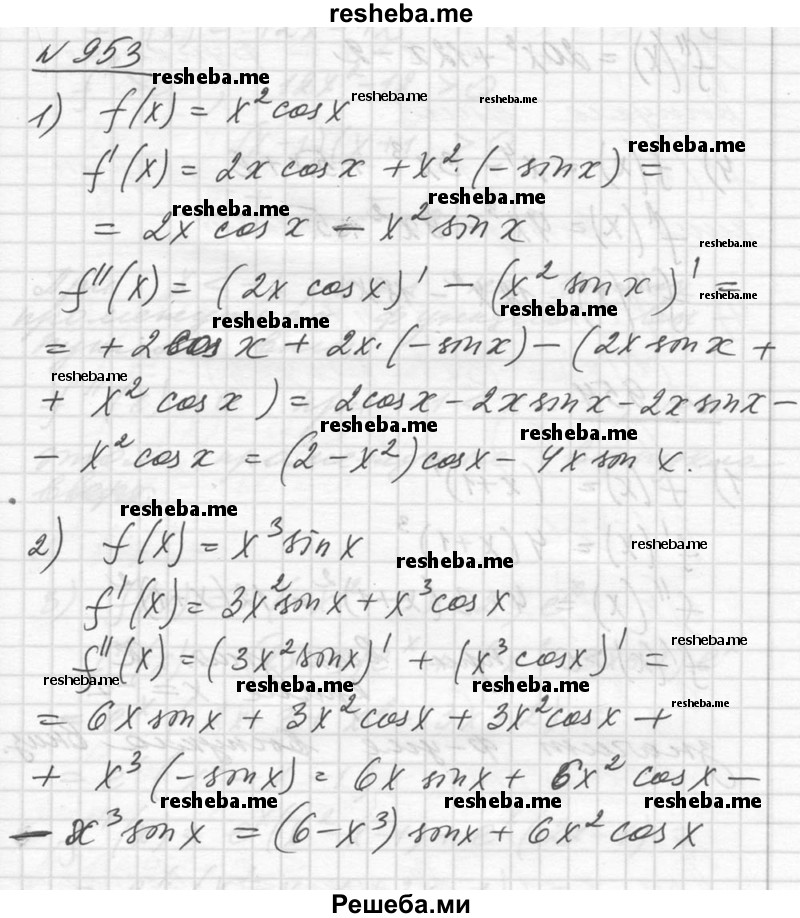 resheba.me
№ 953
resheba.me
1) f(x) = x² cos x resheba.me resheba.me
resheba.me
f'(x) = 2x cos x + x² · (- sin x) =
resheba.me resheba.me
= 2x cos x - x² sin x
resheba.me
f''(x) = (2x cos x)' - (x² sin x)' =
resheba.me
resheba.me resheba.me
= + 2 cos x + 2x · (- sin x) - (2x sin x +
resheba.me
+ x² cos x) = 2cos x - 2x sin x - 2x sin x -
resheba.me resheba.me
- x² cos x = (2 - x²) cos x - 4x sin x.
resheba.me
2) f(x) = x³ sin x
resheba.me
resheba.me
f'(x) = 3x² sin x + x³ cos x
resheba.me
f''(x) = (3x² sin x)' + (x³ cos x)' =
resheba.me resheba.me resheba.me
resheba.me
= 6x sin x + 3x² cos x + 3x² cos x +
+ x³ (- sin x) = 6x sin x + 6x² cos x -
resheba.me resheba.me resheba.me
- x³ sin x = (6 - x³) sin x + 6x² cos x
Решеба.ми